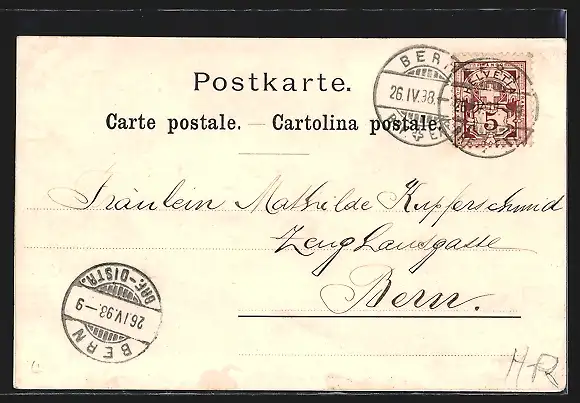 Postkarte.
Carte postale. — Cartolina postale.
BERN
26.IV.98.
HELVETIA
5
Fräulein Mathilde Kupferschmid
Zeughausgasse
Bern.
BRF.-DISTR.
26.IV.98.—9
BERN
HR